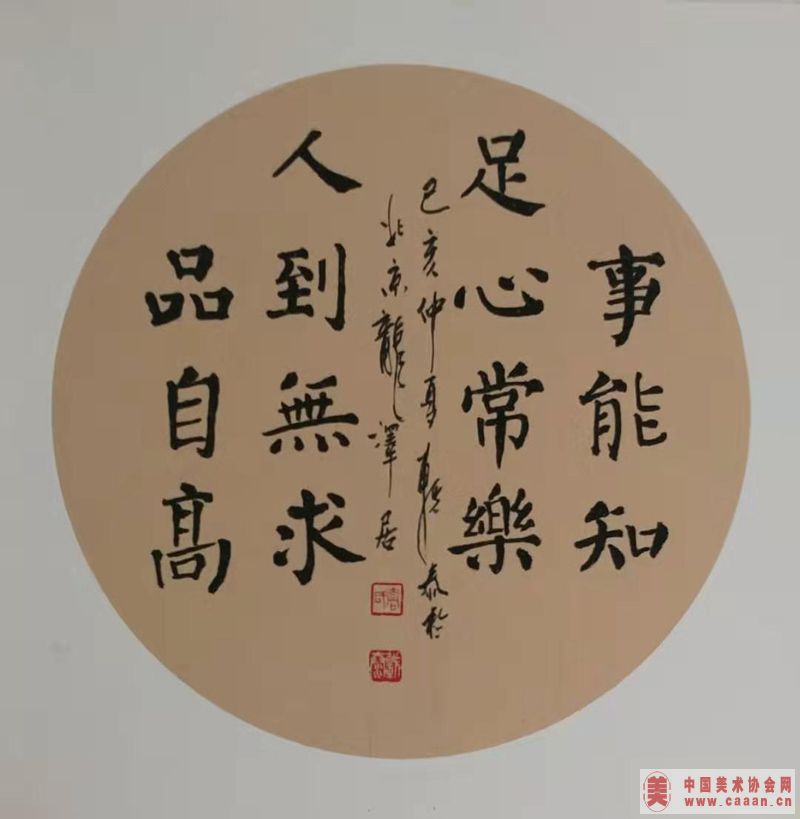 事能知
足心常樂
己亥仲夏
泰於
北京龍澤居
人到無求
品自高
中国美术协会网
www.caaan.cn